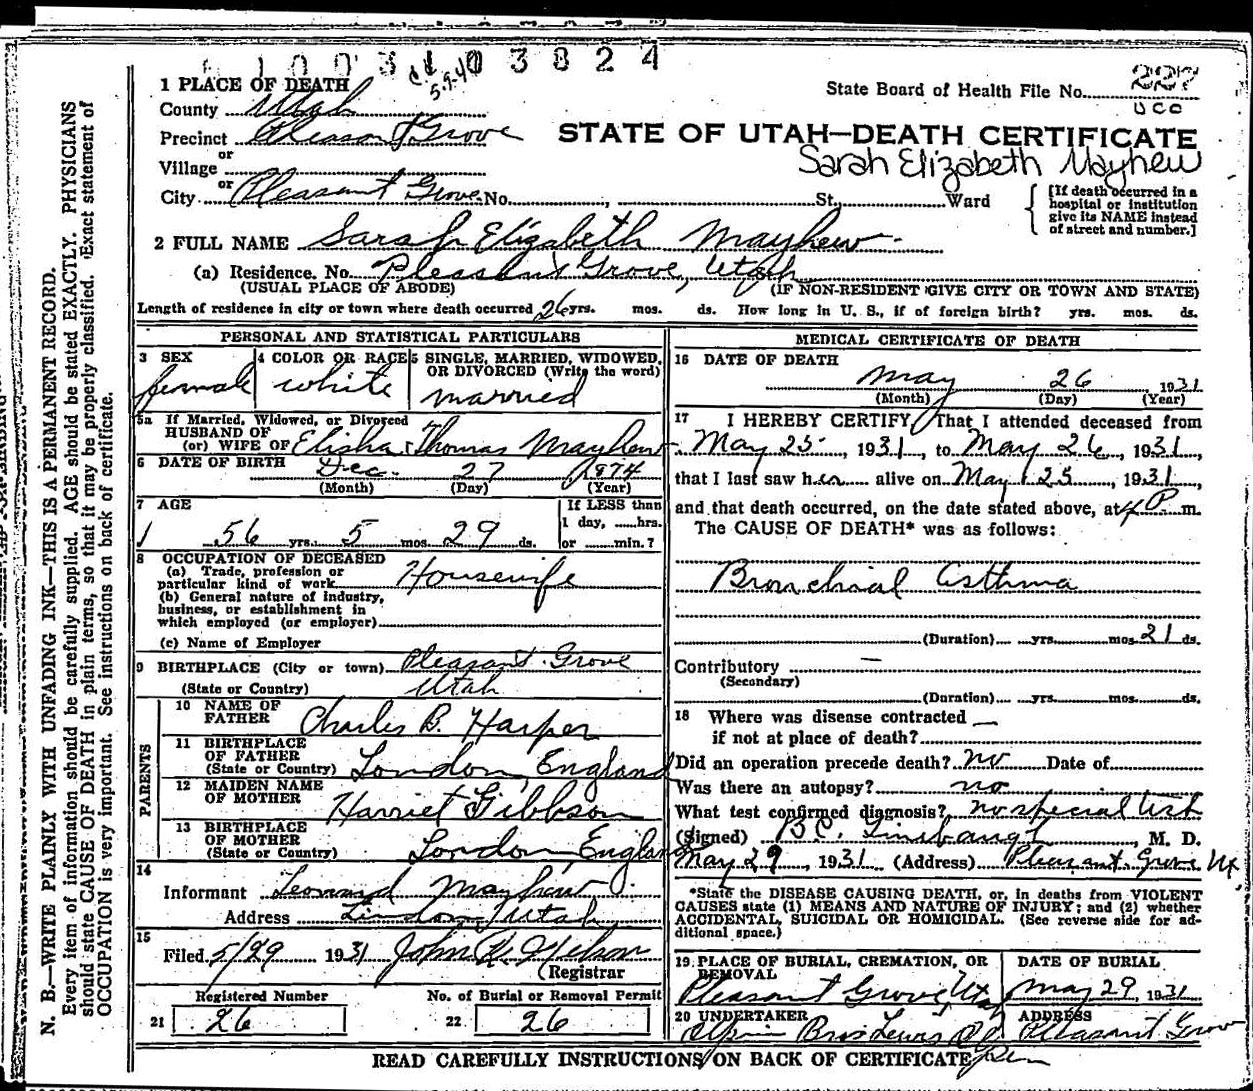 1003103824
5.9.41
1 PLACE OF DEATH
State Board of Health File No. 227
UCO
County Utah
Precinct Pleasant Grove
STATE OF UTAH—DEATH CERTIFICATE
Sarah Elizabeth Mayhew
or
Village
or
City Pleasant Grove No. , St., Ward
[If death occurred in a hospital or institution give its NAME instead of street and number.]
2 FULL NAME Sarah Elizabeth Mayhew
(a) Residence. No. Pleasant Grove, Utah
(USUAL PLACE OF ABODE) (IF NON-RESIDENT GIVE CITY OR TOWN AND STATE)
Length of residence in city or town where death occurred 26 yrs. mos. ds. How long in U. S., if of foreign birth? yrs. mos. ds.
PERSONAL AND STATISTICAL PARTICULARS
3 SEX female
4 COLOR OR RACE white
5 SINGLE, MARRIED, WIDOWED, OR DIVORCED (Write the word) married
5a If Married, Widowed, or Divorced
HUSBAND OF
(or) WIFE OF Elisha Thomas Mayhew
6 DATE OF BIRTH Dec. 27 1874
(Month) (Day) (Year)
7 AGE
56 yrs. 5 mos. 29 ds.
If LESS than
1 day, ......hrs.
or ......min.?
8 OCCUPATION OF DECEASED
(a) Trade, profession or
particular kind of work Housewife
(b) General nature of industry,
business, or establishment in
which employed (or employer)
(c) Name of Employer
9 BIRTHPLACE (City or town) Pleasant Grove
(State or Country) Utah
PARENTS
10 NAME OF FATHER Charles B. Harper
11 BIRTHPLACE OF FATHER (State or Country) London, England
12 MAIDEN NAME OF MOTHER Harriet Gibbson
13 BIRTHPLACE OF MOTHER (State or Country) London England
14
Informant Leonard Mayhew
Address Lindon, Utah
15
Filed 5/29 1931 John K. Nelson
(Registrar
Registered Number No. of Burial or Removal Permit
21 26 22 26
MEDICAL CERTIFICATE OF DEATH
16 DATE OF DEATH
May 26 1931
(Month) (Day) (Year)
17 I HEREBY CERTIFY, That I attended deceased from
May 25 , 1931, to May 26, 1931,
that I last saw her alive on May 25 , 1931,
and that death occurred, on the date stated above, at 4 P. m.
The CAUSE OF DEATH* was as follows:
Bronchial Asthma
(Duration) yrs. mos. 21 ds.
Contributory —
(Secondary)
(Duration) yrs. mos. ds.
18 Where was disease contracted —
if not at place of death?
Did an operation precede death? no Date of
Was there an autopsy? no
What test confirmed diagnosis? no special test
(Signed) B.C. Linebaugh, M. D.
May 29, 1931 (Address) Pleasant Grove Ut.
*State the DISEASE CAUSING DEATH, or, in deaths from VIOLENT
CAUSES state (1) MEANS AND NATURE OF INJURY; and (2) whether
ACCIDENTAL, SUICIDAL OR HOMICIDAL. (See reverse side for ad-
ditional space.)
19 PLACE OF BURIAL, CREMATION, OR REMOVAL Pleasant Grove, Utah
DATE OF BURIAL May 29, 1931
20 UNDERTAKER Olpin Bros
ADDRESS Pleasant Grove
READ CAREFULLY INSTRUCTIONS ON BACK OF CERTIFICATE
N. B.—WRITE PLAINLY WITH UNFADING INK—THIS IS A PERMANENT RECORD.
Every item of information should be carefully supplied. AGE should be stated EXACTLY. PHYSICIANS
should state CAUSE OF DEATH in plain terms, so that it may be properly classified. Exact statement of
OCCUPATION is very important. See instructions on back of certificate.